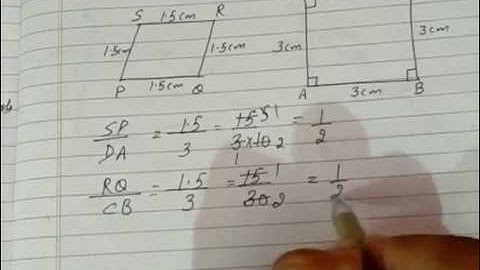 S 1.5cm R
1.5cm 1.5cm 3cm 3cm
P 1.5cm Q
A 3cm B
SP/DA = 1.5/3 = 15/3×10 = 1/2
RQ/CB = 1.5/3 = 15/30 = 1/2